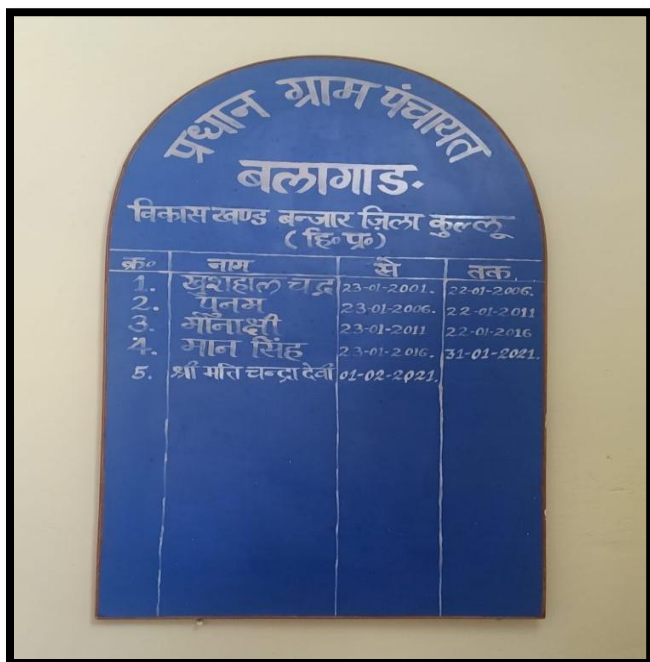 प्रधान ग्राम पंचायत
बलागाड.
विकास खण्ड बन्जार ज़िला कुल्लू
(हि॰ प्र॰)
क्र॰ नाम से तक
1. खुशहाल चन्द्र 23-01-2001. 22-01-2006.
2. पुनम 23-01-2006. 22-01-2011
3. मीनाक्षी 23-01-2011 22-01-2016
4. मान सिंह 23-01-2016. 31-01-2021.
5. श्री मति चन्द्रा देवी 01-02-2021.